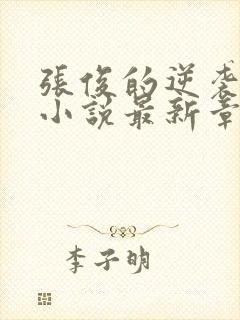 張俊的逆袭
小説最新章
李子明